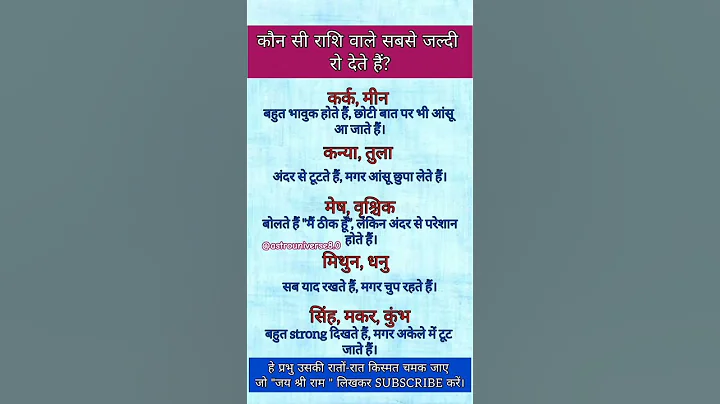 कौन सी राशि वाले सबसे जल्दी
रो देते हैं?
कर्क, मीन
बहुत भावुक होते हैं, छोटी बात पर भी आंसू
आ जाते हैं।
कन्या, तुला
अंदर से टूटते हैं, मगर आंसू छुपा लेते हैं।
मेष, वृश्चिक
बोलते हैं "मैं ठीक हूँ", लेकिन अंदर से परेशान
होते हैं।
@astrouniverse8.0
मिथुन, धनु
सब याद रखते हैं, मगर चुप रहते हैं।
सिंह, मकर, कुंभ
बहुत strong दिखते हैं, मगर अकेले में टूट
जाते हैं।
हे प्रभु उसकी रातों-रात किस्मत चमक जाए
जो "जय श्री राम " लिखकर SUBSCRIBE करें।